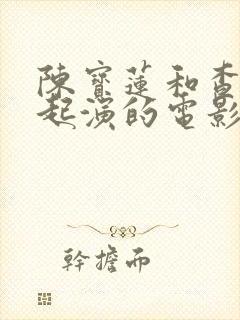 陳寶蓮和
起演的電影
幹擔而